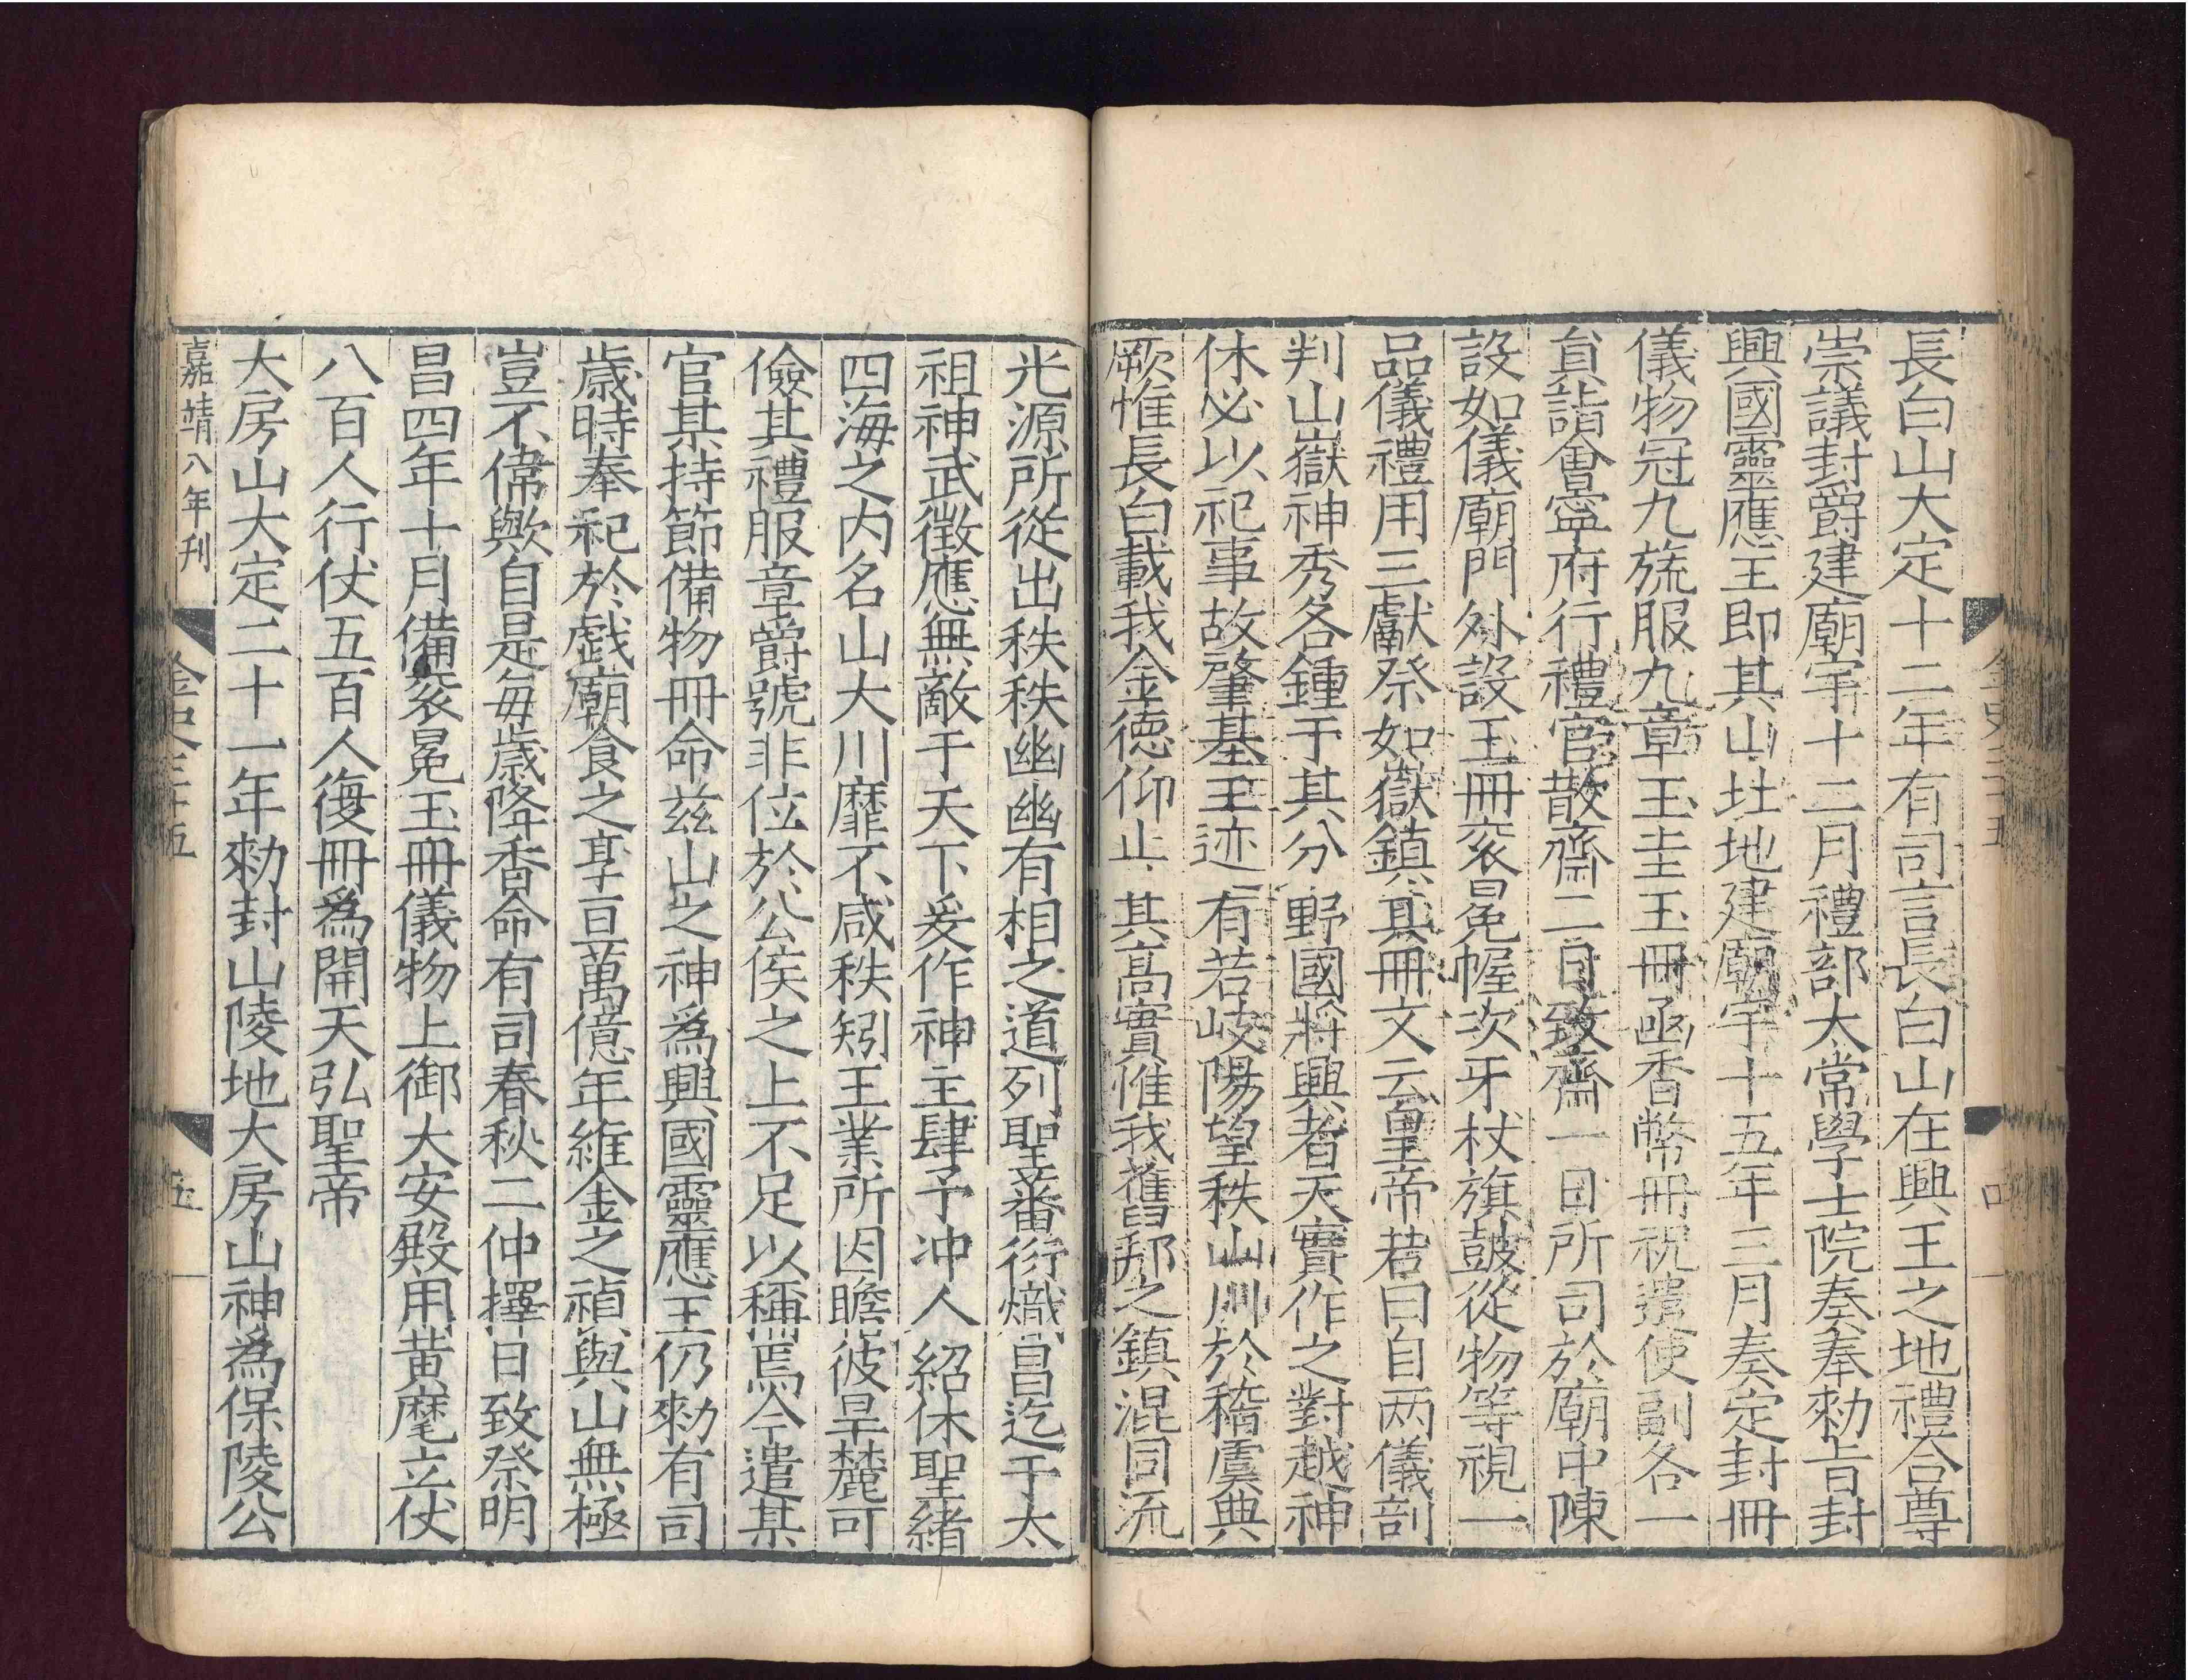 長白山大定十二年有司言長白山在興王之地禮合尊
崇議封爵建廟宇十二月禮部太常學士院奏奉勑旨封
興國靈應王即其山北地建廟宇十五年三月奏定封冊
儀物冠九旒服九章玉圭玉冊函香幣冊祝遣使副各一
貟詣會寧府行禮官散齋二日致齋一日所司於廟中陳
設如儀廟門外設玉冊衮冕幄次牙杖旗鼓從物等視一
品儀禮用三獻祭如嶽鎮其冊文云皇帝若曰自两儀剖
判山嶽神秀各鍾于其分野國將興者天實作之對越神
休必以祀事故肇基王迹有若岐陽望秩山川於稽虞典
厥惟長白載我金德仰止其高實惟我舊邦之鎮混同流
光源所從出秩秩幽幽有相之道列聖蕃衍熾昌迄于太
祖神武徵應無敵于天下爰作神主肆予冲人紹休聖緒
四海之内名山大川靡不咸秩矧王業所因瞻彼旱麓可
儉其禮服章爵號非位於公侯之上不足以稱焉今遣某
官某持節備物冊命兹山之神爲興國靈應王仍勑有司
歲時奉祀於戯廟食之享亘萬億年維金之禎與山無極
豈不偉歟自是每歲降香命有司春秋二仲擇日致祭明
昌四年十月備衮冕玉冊儀物上御大安殿用黄麾立仗
八百人行仗五百人復冊爲開天弘聖帝
大房山大定二十一年勑封山陵地大房山神爲保陵公
嘉靖八年刊
金史三十五
五